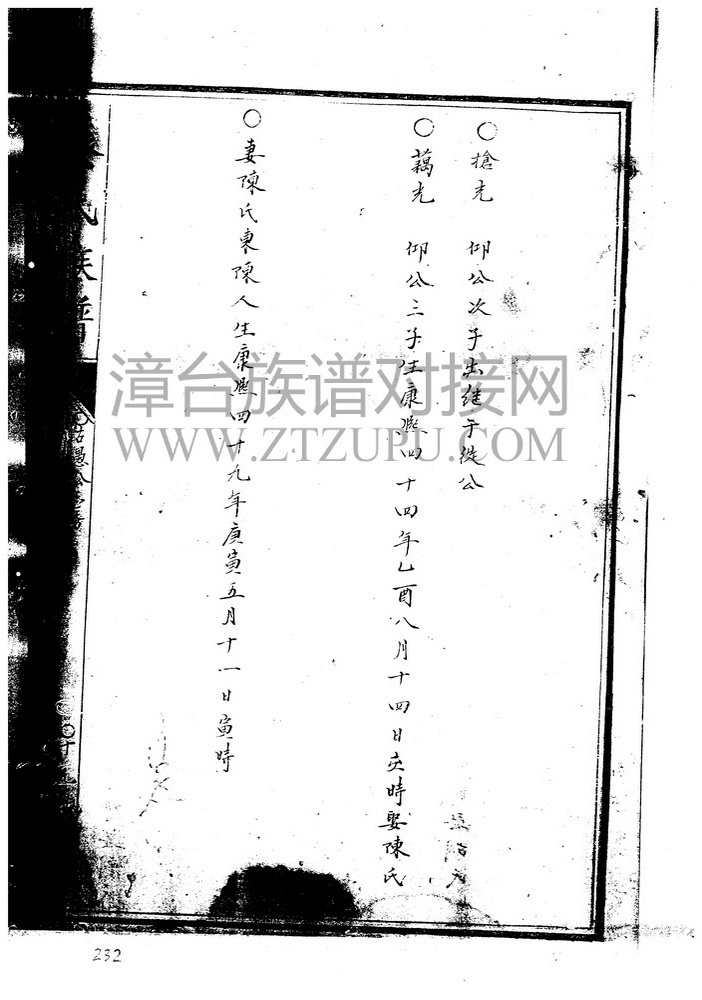 ○搶光 仰公次子出继于從公
○藕光 仰公三子生康熙四十四年乙酉八月十四日亥時娶陳氏
○妻陳氏東陳人生康熙四十九年庚寅五月十一日寅時
氏族譜
漳台族谱对接网
WWW.ZTZUPU.COM
232